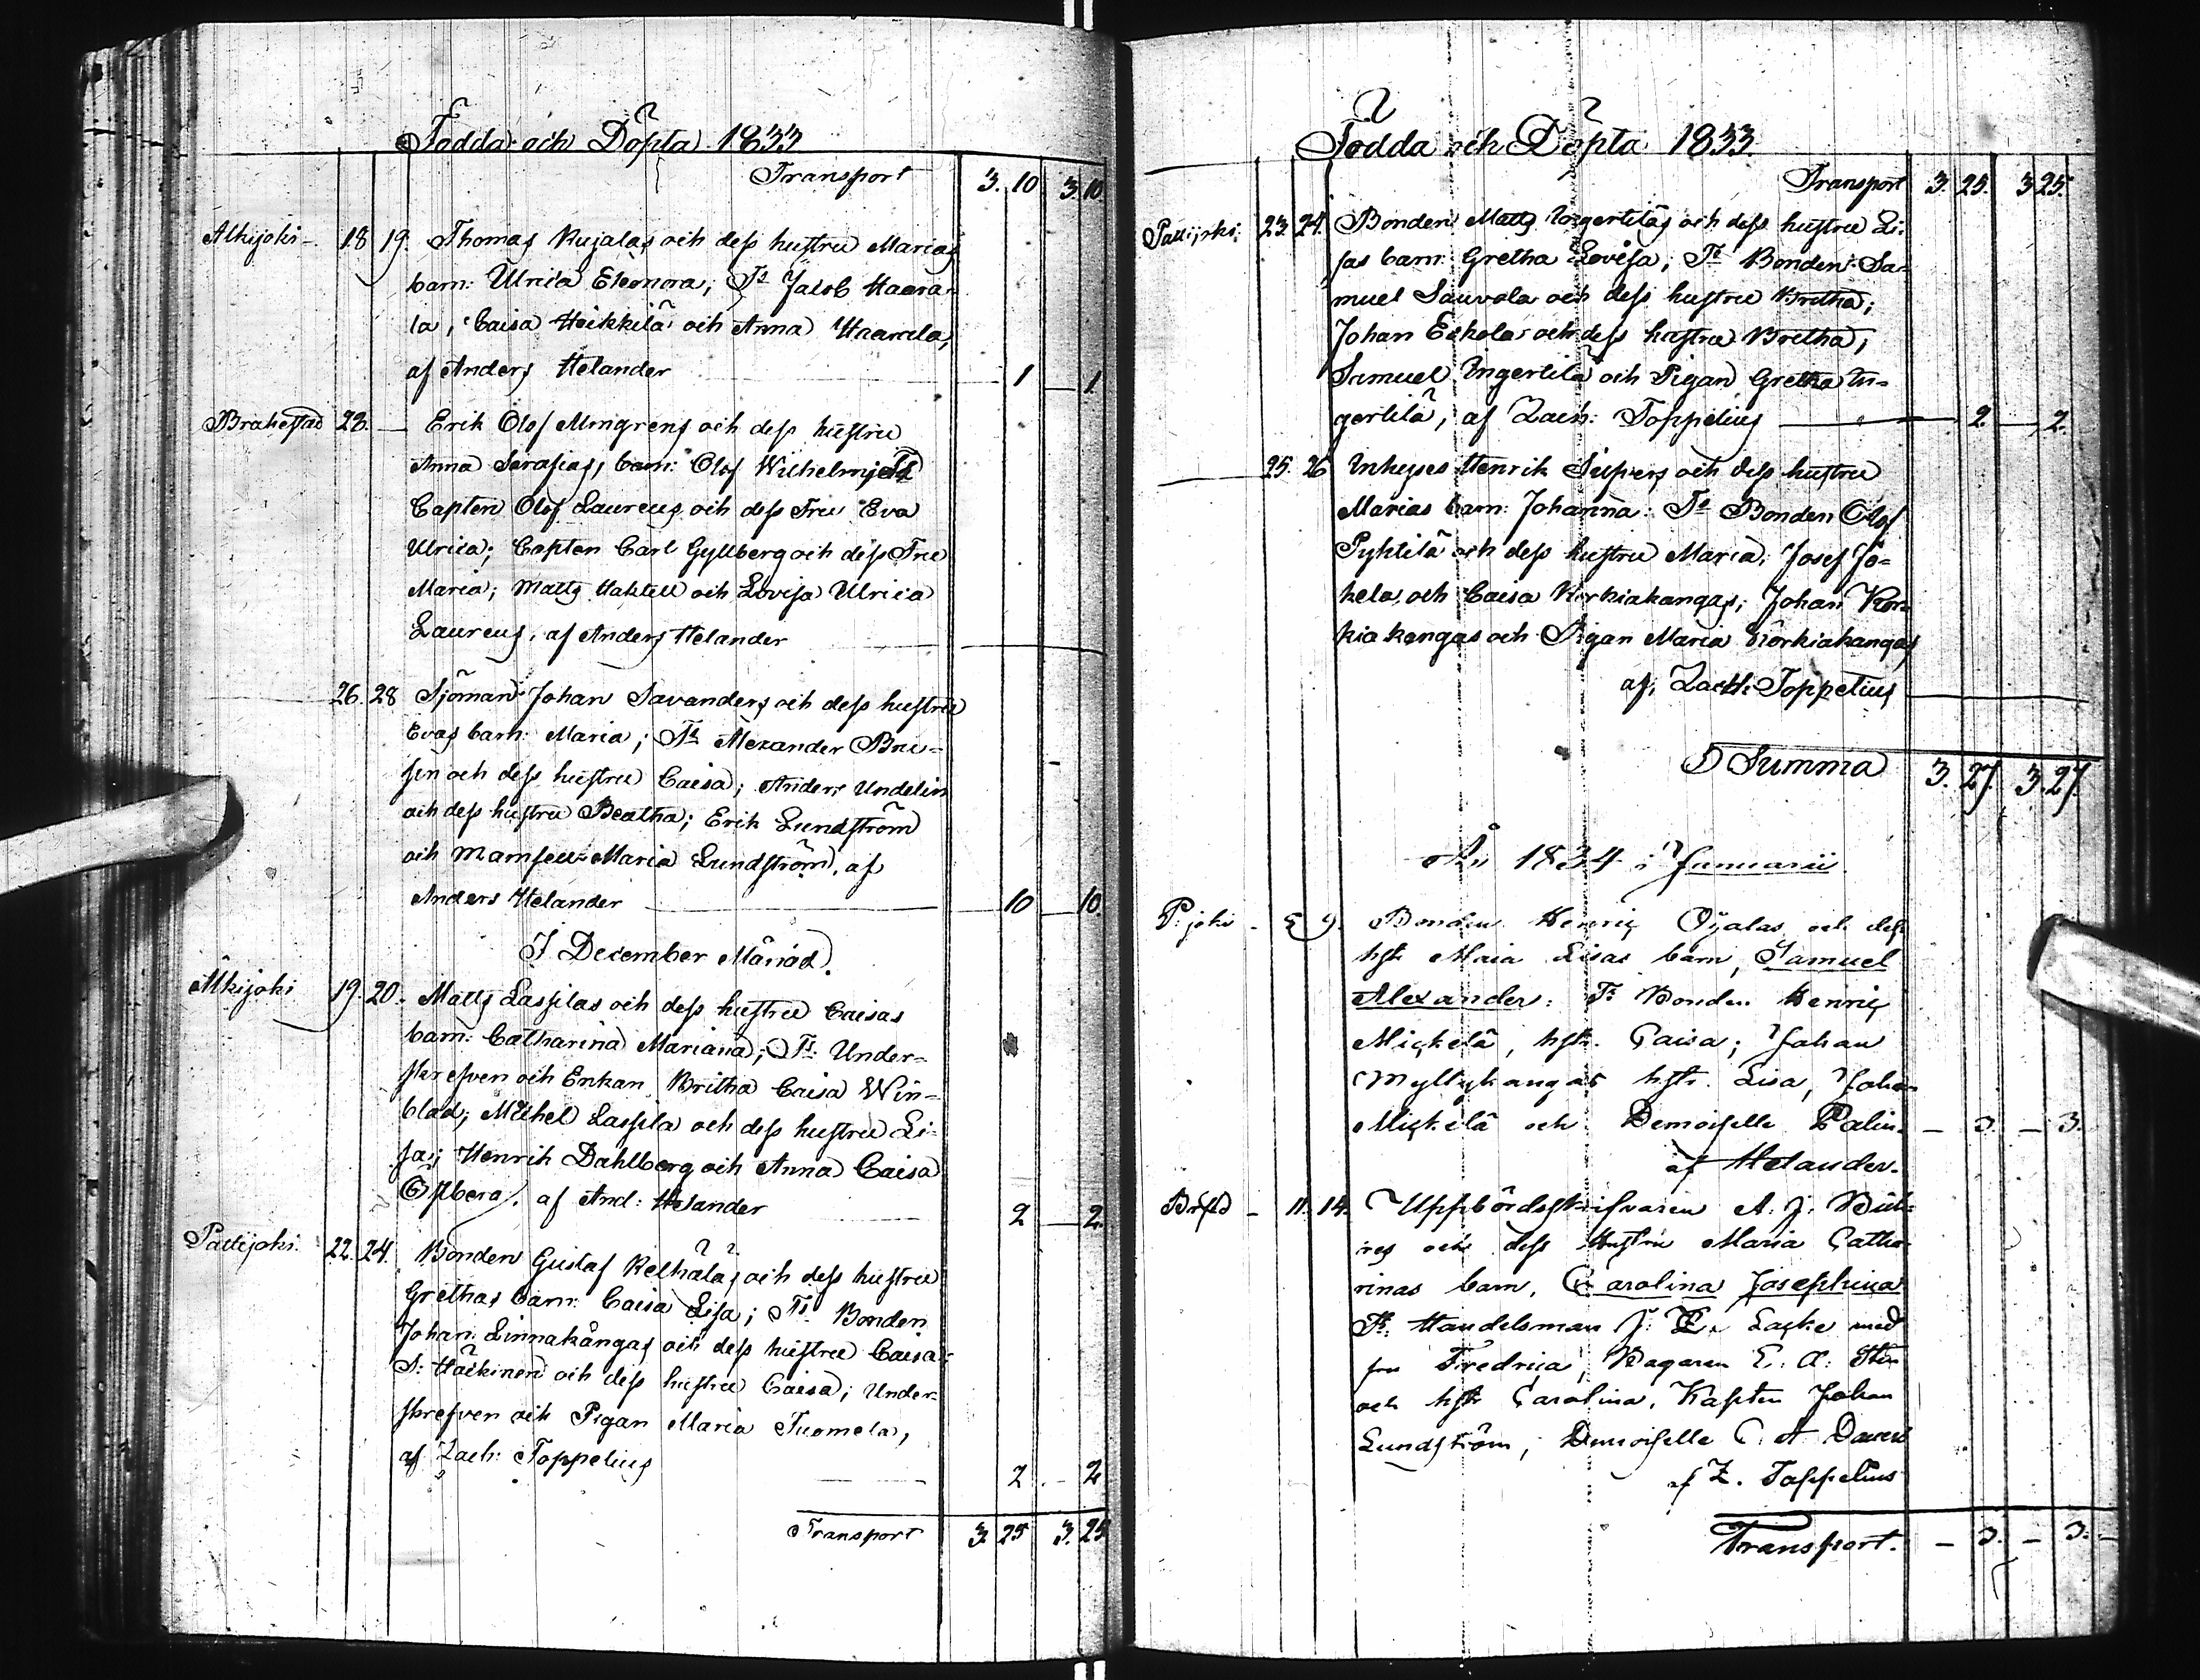 Födda och Döpta 1833
Transport 3. 10 3. 10
Alkijoki 18 19. Thomas Kujalas och dess hustru Marias
barn: Ulrica Eleonora; Ts Jacob Haara-
la, Caisa Heikkilä och Anna Haarala,
af Anders Helander 1 1
Brahestad 22. Erik Olof Almgrens och dess hustru
Anna Sarasias, barn: Olof Wilhelm; Ts
Capten Olof Laureus och dess Fru Eva
Ulrica; Capten Carl Gyllberg och dess Fru
Maria; Matts Hahtell och Lovisa Ulrica
Laureus, af Anders Helander
26. 28 Sjöman Johan Savanders och dess hustru
Evas barn: Maria; Ts Alexander Bru-
sin och dess hustru Caisa; Anders Undelin
och dess hustru Beatha; Erik Lundström
och Mamsell Maria Lundström, af
Anders Helander 10 10.
I December Månad.
Alkijoki 19. 20. Matts Lassilas och dess hustru Caisas
barn: Catharina Mariana; Ts: Under-
skrefven och Enkan Britha Caisa Win-
blad; Michel Lassila och dess hustru Li-
sa; Henrik Dahlberg och Anna Caisa
af And: Helander 2 2
Pattijoki. 22. 24. Bonden Gustaf Kelhäläs och dess hustru
Grethas barn: Caisa Lisa; Ts Bonden
Johan Linnakangas och dess hustru Caisa;
S: Häckinen och dess hustru Caisa; Under-
skrefven och Pigan Maria Tuomela,
af Zach: Toppelius 2 2
Transport 3. 25 3. 25
Födda och Döpta 1833.
Transport 3. 25. 3 25.
Pattijoki: 23. 24. Bonden Matts Ingertiläs och dess hustru Li-
sas barn: Gretha Lovisa; Ts Bonden Sa-
muel Sauvola och dess hustru Britha;
Johan Eskola och dess hustru Bretha;
Samuel Ingertilä och Pigan Gretha In-
gertilä, af Zach: Toppelius 2. 2.
25. 26 Inhyses Henrik Sipers och dess hustru
Marias barn: Johanna: Ts Bonden Olof
Pyhtilä och dess hustru Maria; Josef Jo-
kela, och Caisa Korkiakangas; Johan Kor-
kiakangas och Pigan Maria Korkiakangas
af, Zach: Toppelius
Summa 3. 27. 3. 27.
År 1834 i Januarii
P:joki - 5 9. Bonden Henric Ojalas och dess
hst Maia Lisas barn, Samuel
Alexander: Ts Bonden Henric
Mickelä, hstr. Caisa; Johan
Myllykangas hstr. Lisa, Johan
Mickelä och Demoiselle Palin. - 3. - 3.
af Helander.
Brstd - 11. 14. Uppbördsskrifvaren A. J.
och dess Hustru Maria Catha-
rinas barn, Carolina Josephina
Ts. Handelsman J: Lacke med
fru Fredrica, Bagaren E: A:
och hstr Carolina, Kapten Johan
Lundström, Demoiselle C. A.
af Z. Toppelius
Transport. - 3. - 3. -